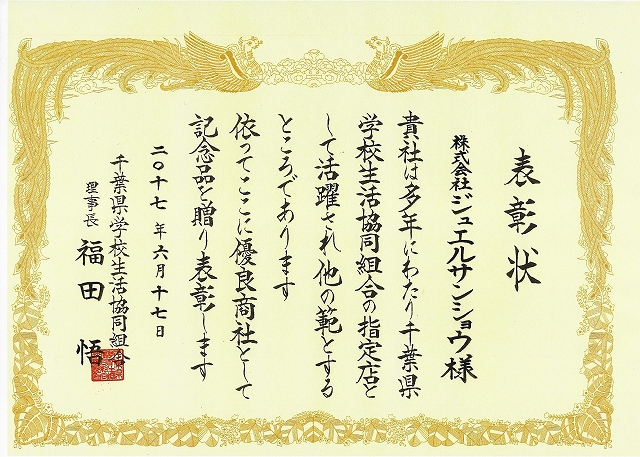 表彰状
株式会社ジュエルサンショウ様
貴社は多年にわたり千葉県
学校生活協同組合の指定店と
して活躍され他の範とする
ところであります
依ってここに優良商社として
記念品を贈り表彰します
二〇十七年六月十七日
千葉県学校生活協同組合
理事長 福田悟